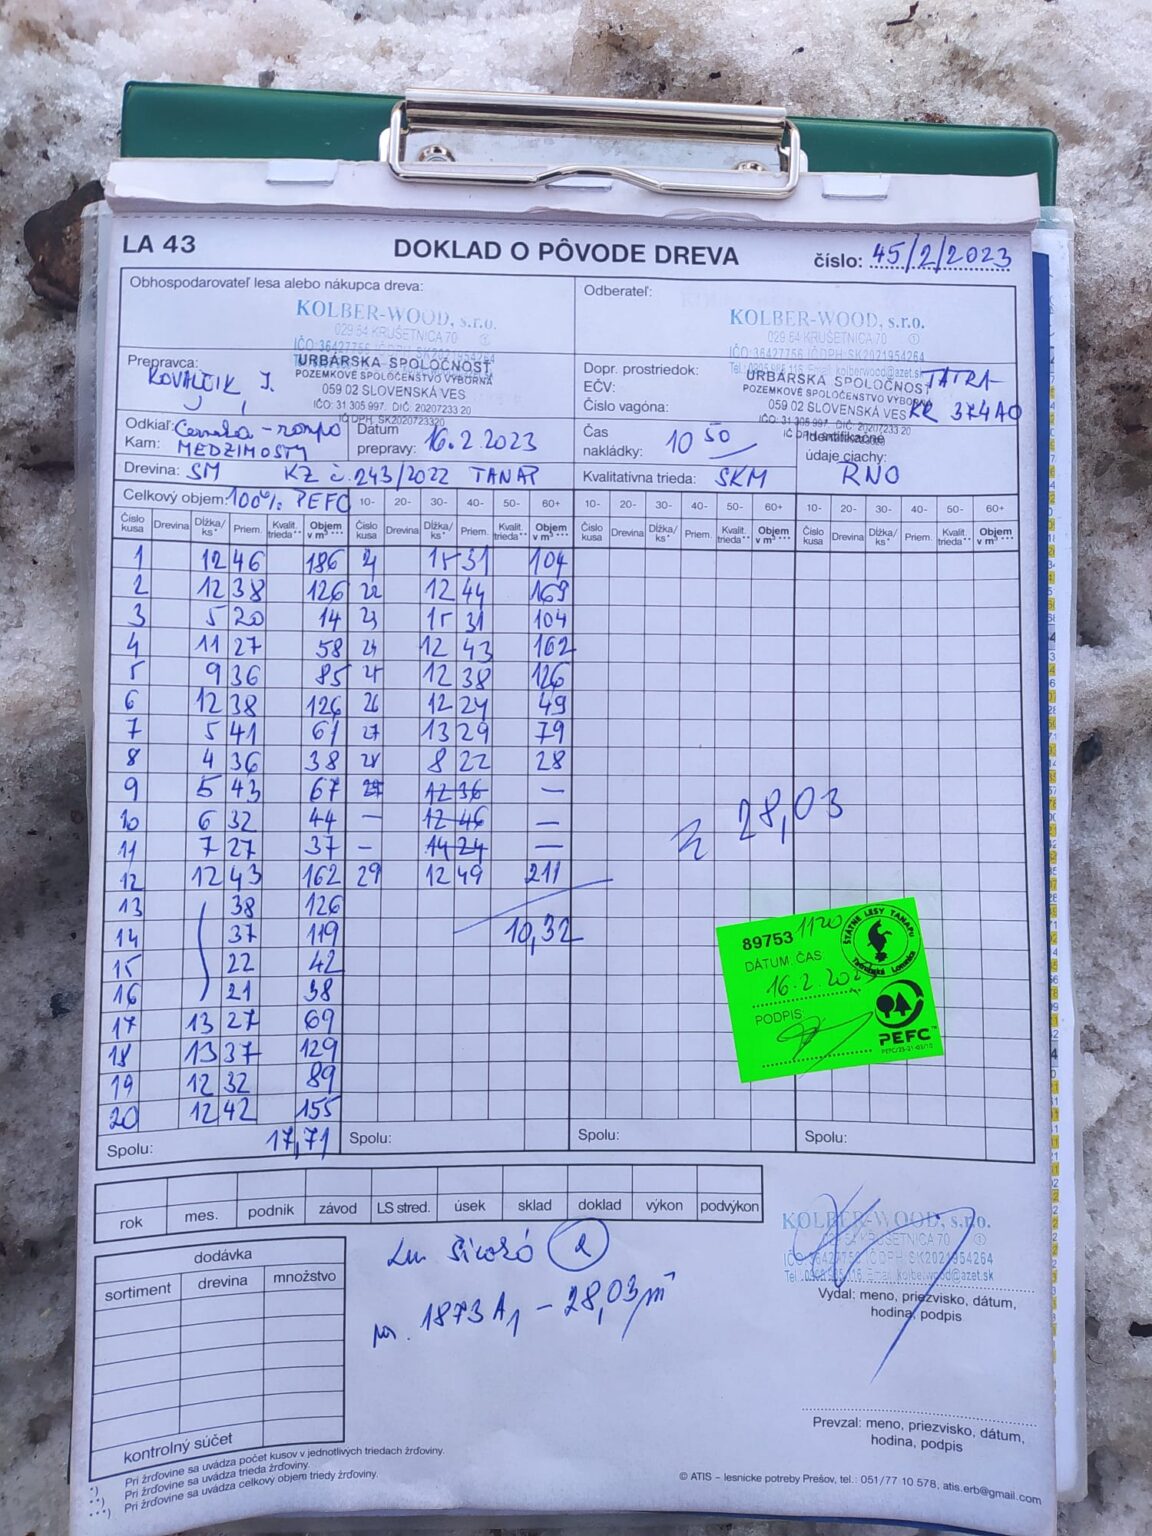 LA 43 DOKLAD O PÔVODE DREVA číslo: 45/2/2023
Obhospodarovateľ lesa alebo nákupca dreva:
KOLBER-WOOD, s.r.o.
029 54 KRUŠETNICA 70
IČO:36427756 IČ DPH: SK2021954264
Odberateľ:
KOLBER-WOOD, s.r.o.
029 54 KRUŠETNICA 70
IČO:36427756 IČ DPH: SK2021954264
Prepravca:
KOVALČIK J.
URBÁRSKA SPOLOČNOSŤ
POZEMKOVÉ SPOLOČENSTVO VÝBORNÁ
059 02 SLOVENSKÁ VES
IČO: 31 305 997, DIČ: 20207233 20
IČ DPH: SK2020723320
Dopr. prostriedok: TATRA
EČV: KK 374AO
Číslo vagóna:
URBÁRSKA SPOLOČNOSŤ
POZEMKOVÉ SPOLOČENSTVO VÝBORNÁ
059 02 SLOVENSKÁ VES
IČO: 31 305 997, DIČ: 20207233 20
Odkiaľ:
Kam: MEDZIMOSTY
Datum prepravy: 16.2.2023
Čas nakládky: 10 50
Identifikačné údaje ciachy: RNO
Drevina: SM KZ č.243/2022 TANAP
Kvalitatívna trieda: SKM
Celkový objem: 100% PEFC 10- 20- 30- 40- 50- 60+ 10- 20- 30- 40- 50- 60+ 10- 20- 30- 40- 50- 60+
Číslo kusa Drevina Dĺžka/ks* Priem. Kvalit. trieda** Objem v m³*** Číslo kusa Drevina Dĺžka/ks* Priem. Kvalit. trieda** Objem v m³*** Číslo kusa Drevina Dĺžka/ks* Priem. Kvalit. trieda** Objem v m³*** Číslo kusa Drevina Dĺžka/ks* Priem. Kvalit. trieda** Objem v m³***
1 12 46 186 21 15 31 104
2 12 38 126 22 12 44 169
3 5 20 14 23 15 31 104
4 11 27 58 24 12 43 162
5 9 36 85 25 12 38 126
6 12 38 126 26 12 24 49
7 5 41 61 27 13 29 79
8 4 36 38 28 8 22 28
9 5 43 67 29 12 36 —
10 6 32 44 — 12 46 —
11 7 27 37 — 14 24 —
12 12 43 162 29 12 49 211
13 38 126
14 37 119 10,32
15 22 42
16 21 38
17 13 27 69
18 13 37 129
19 12 32 89
20 12 42 155
28,03
89753 1120
DÁTUM, ČAS:
16.2.2023
PODPIS:
ŠTÁTNE LESY TANAPU
Tatranská Lomnica
PEFC™
Spolu: 17,71 Spolu: Spolu: Spolu:
rok mes. podnik závod LS stred. úsek sklad doklad výkon podvýkon
dodávka
sortiment drevina množstvo
kontrolný súčet
2
1873 A1 – 28,03 m³
KOLBER-WOOD, s.r.o.
029 54 KRUŠETNICA 70
IČO:36427756 IČ DPH: SK2021954264
Vydal: meno, priezvisko, dátum,
hodina, podpis
Prevzal: meno, priezvisko, dátum,
hodina, podpis
*) Pri žrďovine sa uvádza počet kusov v jednotlivých triedach žrďoviny.
**) Pri žrďovine sa uvádza trieda žrďoviny.
***) Pri žrďovine sa uvádza celkový objem triedy žrďoviny.
© ATIS – lesnícke potreby Prešov, tel.: 051/77 10 578, atis.erb@gmail.com